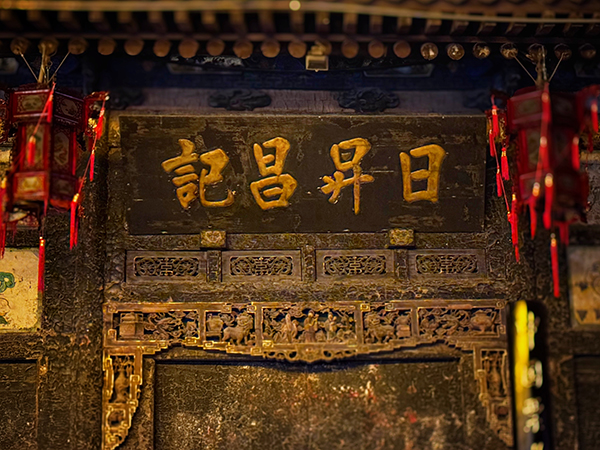 日昇昌記